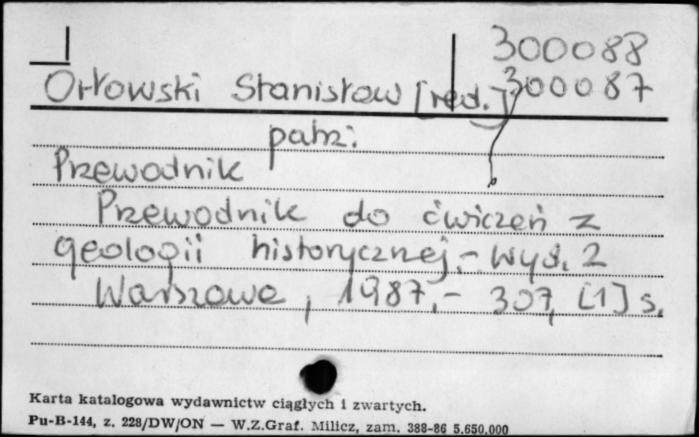 300088
Orłowski Stanisław [red.] 300087
patrz:
Przewodnik
Przewodnik do ćwiczeń z
geologii historycznej.- Wyd. 2
Warszawa, 1987.- 307, [1] s.
Karta katalogowa wydawnictw ciągłych i zwartych.
Pu-B-144, z. 228/DW/ON — W.Z.Graf. Milicz, zam. 388-86 5.650.000